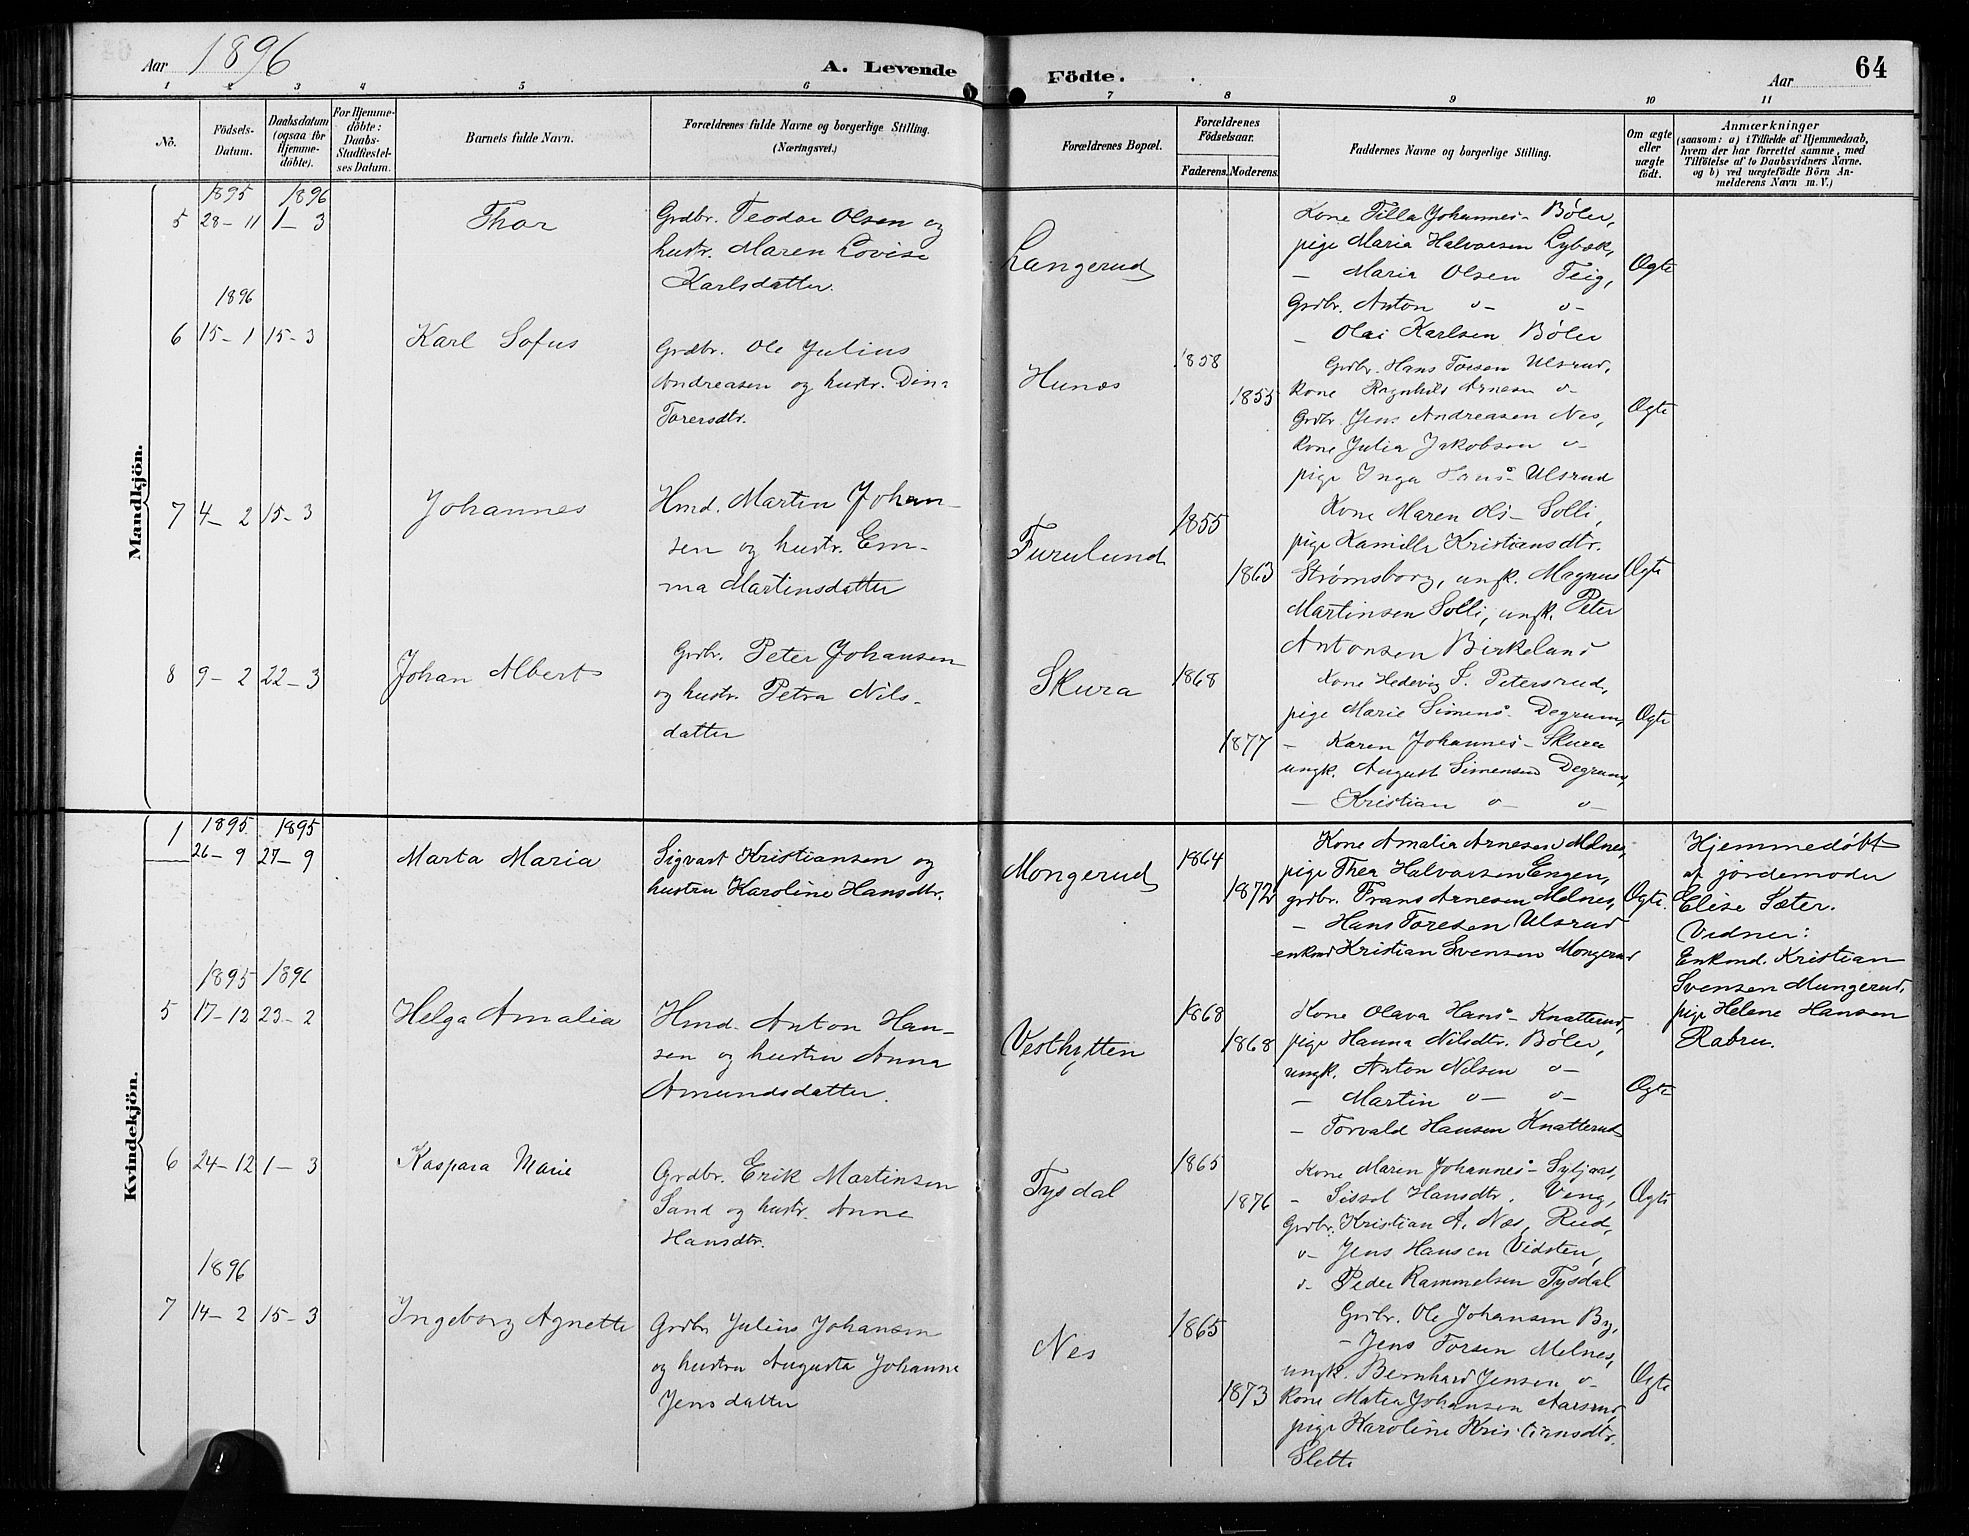 Aar 1896
A. Levende Födte.
Aar
64
1 2 3 4 5 6 7 8 9 10 11
No.
Födsels-Datum.
Daabsdatum (ogsaa for Hjemme-döbte).
For Hjemme-döbte: Daabs-Stadfæstel-ses Datum.
Barnets fulde Navn.
Forældrenes fulde Navne og borgerlige Stilling. (Næringsvei.)
Forældrenes Bopæl.
Forældrenes Födselsaar.
Faderens. Moderens.
Faddernes Navne og borgerlige Stilling.
Om ægte eller uægte födt.
Anmærkninger
(saasom: a) i Tilfælde af Hjemmedaab,
hvem der har forrettet samme, med
Tilföielse af to Daabsvidners Navne.
og b) ved uægtefödte Börn An-
melderens Navn m. V.)
Mandkjön.
1895 1896
5 28-11 1-3
Thor
Grdbr. Teodor Olsen og
hustr. Maren Lovise
Karlsdatter.
Langerud
Kone Tilla Johannes- Bøler,
pige Maria Halvorsen Lybæk,
— Maria Olsen Teig,
Grdbr. Anton o- o-
— Olai Karlsen Bøler
Øgte
1896
6 15-1 15-3
Karl Sofus
Grdbr. Ole Julius
Andreasen og hustr. Dina
Torersdtr.
Hunæs
1858
1855
Grdbr. Hans Toresen Ulsrud,
Kone Ragnhild Arnesen o-
Grdbr. Jens Andreasen Nes,
Kone Julia Jakobsen o-
pige Inga Hans- Ulsrud
Øgte
7 4-2 15-3
Johannes
Hmd. Martin Johan-
sen og hustr. Em-
ma Martinsdatter
Furulund
1855
1863
Kone Maren Ols- Solli,
pige Kamilla Kristiansdtr.
Strømsborg, ungk. Magnus
Martinsen Solli, ungk. Peter
Antonsen Birkeland
Øgte
8 9-2 22-3
Johan Albert
Grdbr. Peter Johansen
og hustr. Petra Nils-
datter
Skura
1868
1877
Kone Hedevig S. Petersrud,
pige Marie Simens- Degrum,
— Karen Johannes- Skura
ungk. August Simensen Degrum,
— Kristian o- o-
Øgte
Kvindekjön.
1895 1895
1 26-9 27-9
Marta Maria
Sigvart Kristiansen og
hustru Karoline Hansdtr.
Mongerud
1864
1872
Kone Amalia Arnesen Melnes,
pige Thea Halvorsen Engen,
grdbr. Frans Arnesen Melnes,
— Hans Toresen Ulsrud
enkmd Kristian Svensen Mongerud
Øgte.
Hjemmedøbt
af jordemoder
Elise Sæter.
Vidner:
Enkmd. Kristian
Svensen Mungerud,
pige Helene Hansen
Rabru.
1895 1896
5 17-12 23-2
Helga Amalia
Hmd. Anton Han-
sen og hustru Anna
Amundsdatter.
Vesthytten
1868
1868
Kone Olava Hans- Knatterud,
pige Hanna Nilsdtr. Bøler,
ungk. Anton Nilsen o-
— Martin o- o-
— Torvald Hansen Knatterud
Øgte
6 24-12 1-3
Kaspara Marie
Grdbr. Erik Martinsen
Sand og hustr. Anne
Hansdtr.
Tysdal
1865
1876
Kone Maren Johannes-
— Sissel Hansdtr. Veng,
Grdbr. Kristian A. Næs, Rud,
o- Jens Hansen Vidsten,
o- Peder Rammelsen Tysdal
Øgte
1896
7 14-2 15-3
Ingeborg Agnette
Grdbr. Julius Johansen
og hustru Augusta Johanne
Jensdatter
Nes
1865
1873
Grdbr. Ole Johansen By,
— Jens Torsen Melnes,
ungk. Bernhard Jensen o-
Kone Matea Johansen Aarsrud,
pige Karoline Kristiansdtr.
Slette
Øgte